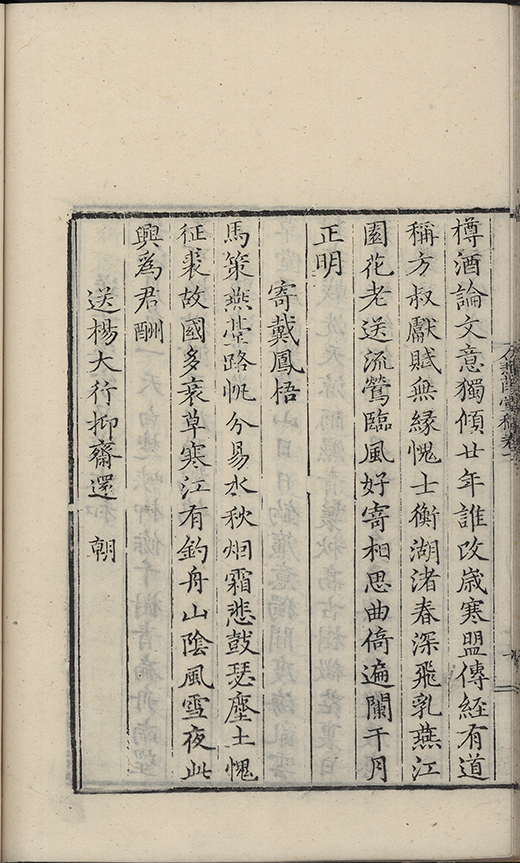 樽酒論文意獨傾廿年誰改歲寒盟傳經有道
稱方叔獻賦無緣愧士衡湖渚春深飛乳燕江
園花老送流鶯臨風好寄相思曲倚遍闌干月
正明
寄戴鳳梧
馬策燕臺路帆分易水秋烟霜悲鼓瑟塵土愧
征裘故國多衰草寒江有釣舟山陰風雪夜此
興為君酬
送楊大行抑齋還 朝